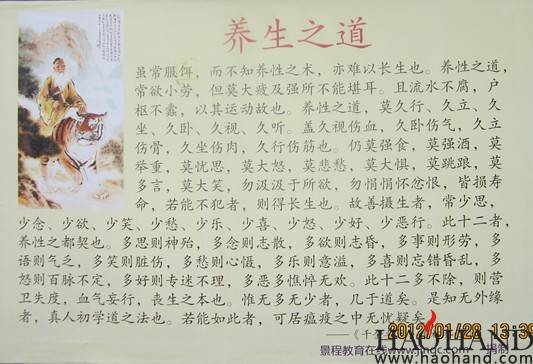 养生之道
虽常服饵，而不知养性之术，亦难以长生也。养性之道，
常欲小劳，但莫大疲及强所不能堪耳。且流水不腐，户
枢不蠹，以其运动故也。养性之道，莫久行、久立、久
坐、久卧、久视、久听。盖久视伤血，久卧伤气，久立
伤骨，久坐伤肉，久行伤筋也。仍莫强食，莫强酒，莫
举重，莫忧思，莫大怒，莫悲愁，莫大惧，莫跳踉，莫
多言，莫大笑，勿汲汲于所欲，勿悁悁怀忿恨，皆损寿
命，若能不犯者，则得长生也。故善摄生者，常少思，
少念、少欲、少笑、少愁、少乐、少喜、少怒、少好、少恶行。此十二者，
养性之都契也。多思则神殆，多念则志散，多欲则志昏，多事则形劳，多
语则气乏，多笑则脏伤，多愁则心慑，多乐则意溢，多喜则忘错昏乱，多
怒则百脉不定，多好则专迷不理，多恶多憔悴无欢。此十二多不除，则营
卫失度，血气妄行，丧生之本也。惟无多无少者，几于道矣。是知无外缘
者，真人初学道之法也。若能如此者，可居瘟疫之中无忧疑矣。
——《千
景程教育在线www.jhdc.com 编制
2012/01/28 13:39
HAOHAND
www.haohand.com